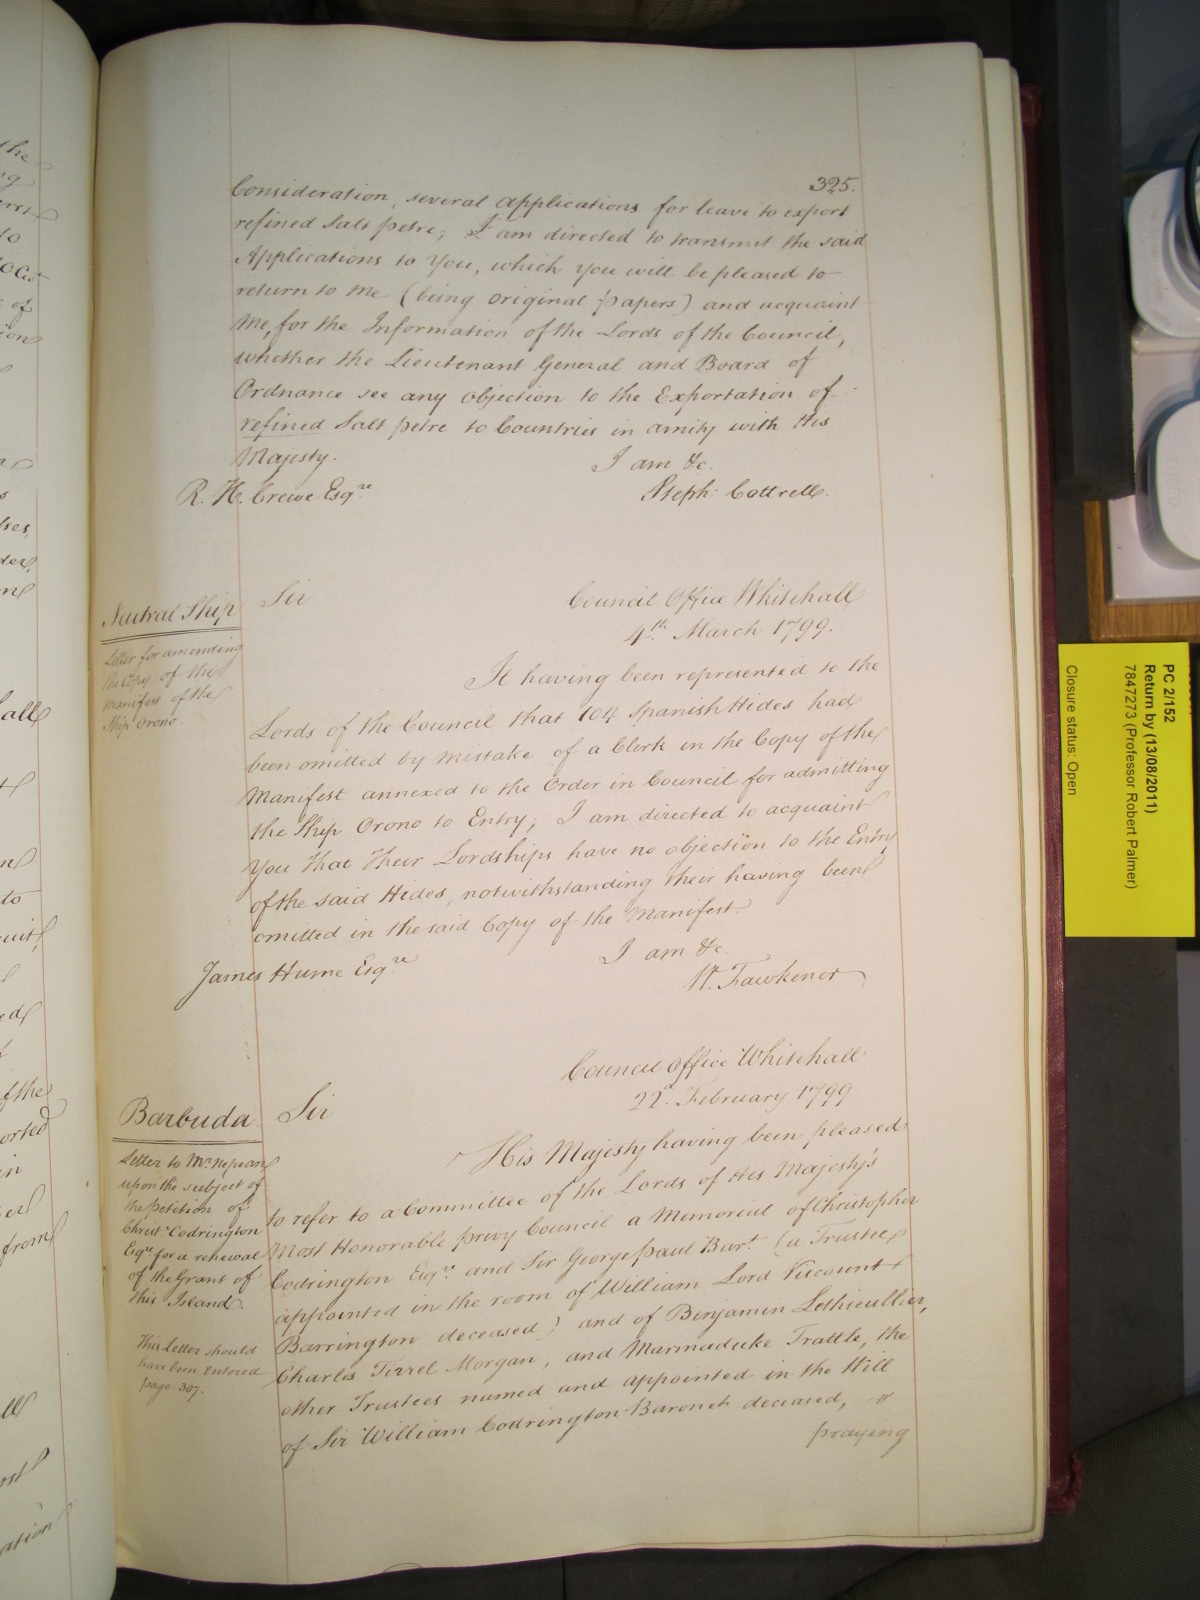 325.
Consideration, several applications for leave to export
refined Salt petre; I am directed to transmit the said
Applications to You, which you will be pleased to
return to me (being original papers) and acquaint
Me, for the Information of the Lords of the Council,
whether the Lieutenant General and Board of
Ordnance see any objection to the Exportation of
refined Salt petre to Countries in amity with His
Majesty. I am &c.
R. H. Crewe Esqre Steph. Cottrell.
Neutral Ship
Letter for amending
the Copy of the
Manifest of the
Ship Orono.
Sir Council Office Whitehall
4th. March 1799.
It having been represented to the
Lords of the Council that 104 Spanish Hides had
been omitted by mistake of a Clerk in the Copy of the
Manifest annexed to the Order in Council for admitting
the Ship Orono to Entry; I am directed to acquaint
You that Their Lordships have no objection to the Entry
of the said Hides, notwithstanding their having been
omitted in the said Copy of the Manifest.
I am &c.
James Hume Esqre W. Fawkener
Council Office Whitehall
22d. February 1799
Barbuda
Letter to Mr. Nepean
upon the subject of
the petition of
Christr Codrington
Esqr. for a renewal
of the Grant of
this Island.
This Letter should
have been entered
page 307.
Sir
His Majesty having been pleased
to refer to a Committee of the Lords of His Majesty's
Most Honorable privy Council a Memorial of Christopher
Codrington Esqr. and Sir George paul Bart. (a Trustee
appointed in the room of William Lord Viscount
Barrington deceased) and of Benjamin Lethieullier,
Charles Tirrel Morgan, and Marmaduke Trattle, the
other Trustees named and appointed in the Will
of Sir William Codrington Baronet deceased,
praying
PC 2/152
Return by (13/08/2011)
7847273 (Professor Robert Palmer)
Closure status: Open